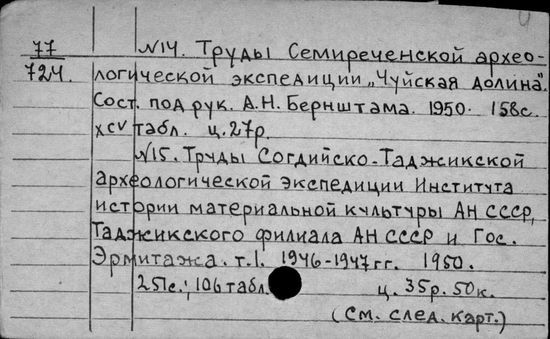 77 №14. Труды Семиреченской архео-
724. логической экспедиции „Чуйская долина".
Сост. под рук. А.Н. Бернштама. 1950. 158с.
XCV табл. ц. 27р.
№15. Труды Согдийско-Таджикской
археологической экспедиции Института
истории материальной культуры АН СССР,
Таджикского филиала АН СССР и Гос.
Эрмитажа. т.1. 1946-1947гг. 1950.
251с.; 106 табл. ц. 35р. 50к.
(См. след. карт.)